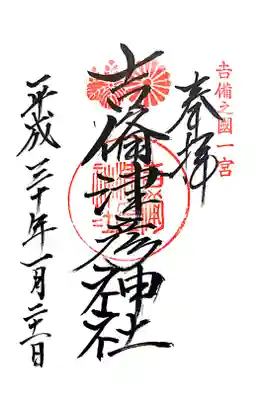 吉備之國一宮
奉拝
吉備津彦神社
平成三十年一月二十一日